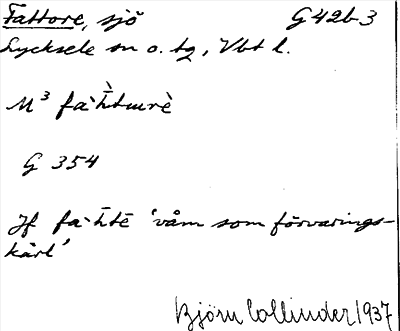 Fattore, sjö G42b3
Lycksele sn o. tg, Vbt l.
M³ fà·t̄turè
G 354
Jf fa·t̄tē 'våm som förvarings-
kärl'
Björn Collinder 1937